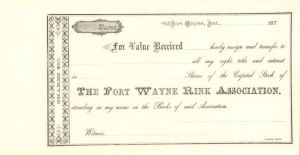 Shares.
Fort Wayne, Ind., 187
For Value Received hereby assign and transfer to
all my right, title and interest
in Shares of the Capital Stock of
The Fort Wayne Rink Association,
standing in my name on the Books of said Association.
Witness,